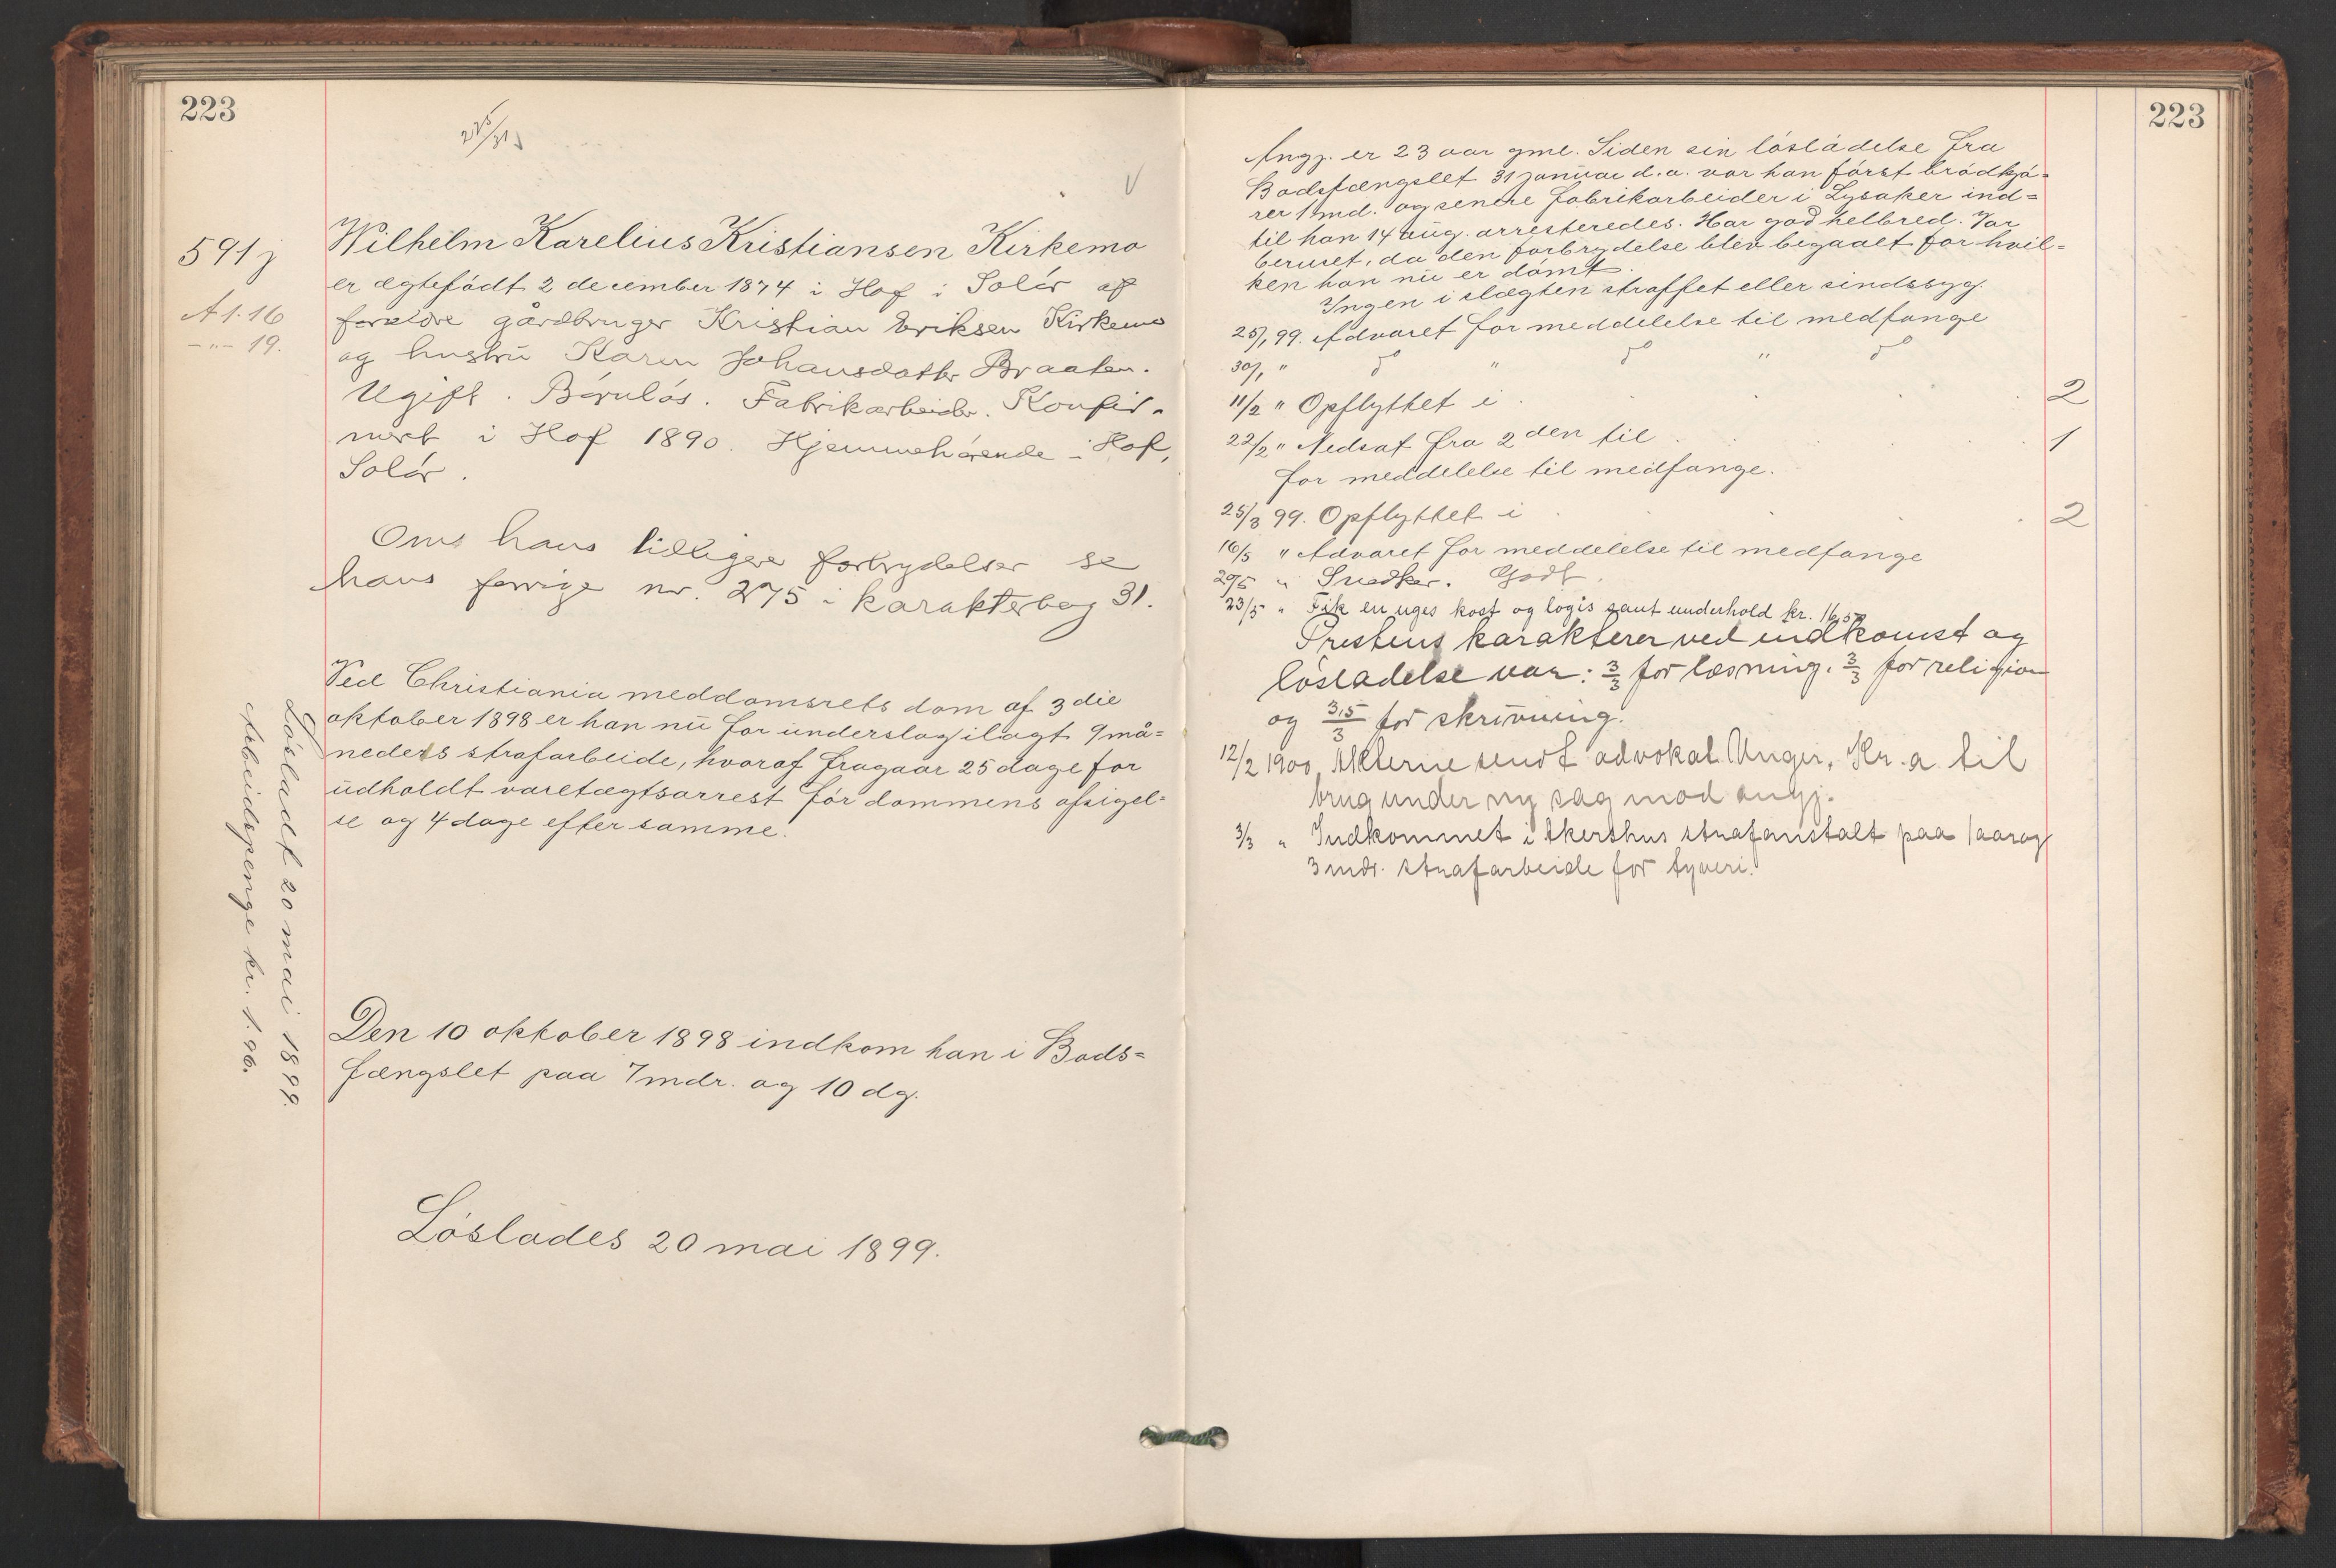 223
275/31
V
591 j
A 1.16
-"- 19.
Wilhelm Karelius Kristiansen Kirkemo
er ægtefödt 2 december 1874 i Hof i Solör af
forældre gårdbruger Kristian Eriksen Kirkemo
og hustru Karen Johansdatter Braaten.
Ugift. Barnlös. Fabrikarbeider. Konfir-
mert i Hof 1890. Hjemmehörende i Hof,
Solör.
Om hans tidligere forbrydelser se
hans forrige nr. 275 i karakterbog 31.
Ved Christiania meddomsrets dom af 3die
oktober 1898 er han nu for underslag ilagt 9 må=
neders strafarbeide, hvoraf fragaar 25 dage for
udholdt varetægtsarrest för dommens afsigel=
se og 4 dage efter samme.
Lösladt 20 mai 1899.
Arbeidspenge kr. 1.96.
Den 10 oktober 1898 indkom han i Bods=
fængslet paa 7 mdr. og 10 dg.
Löslades 20 mai 1899.
223
Angj. er 23 aar gml. Siden sin lösladelse fra
Bodsfængslet 31 januar d.a. var han först brödkjö=
rer 1 md. og senere fabrikarbeider i Lysaker ind=
til han 14 aug. arresteredes. Har god helbred. Var
beruset, da den forbrydelse blev begaaet for hvil=
ken han nu er dömt.
Ingen i slægten straffet eller sindssyg.
25/1 99. Advaret for meddelelse til medfange
30/1 " do " do " do
11/2 " Opflyttet i 2
22/2 " Nedsat fra 2den til 1
for meddelelse til medfange.
25/3 99. Opflyttet i 2
16/5 " Advaret for meddelelse til medfange
20/5 " Snedker. Godt.
23/5 " Fik en uges kost og logis samt underhold kr. 16,50
Prestens karakterer ved indkomst og
lösladelse var: 3/3 for læsning, 3/3 for religion
og 3,5/3 for skrivning.
12/2 1900, Akterne sendt advokat Unger, Kr.a til
brug under ny sag mod angj.
3/3 " Indkommet i Akershus strafanstalt paa 1 aar og
3 mdr. strafarbeide for tyveri.